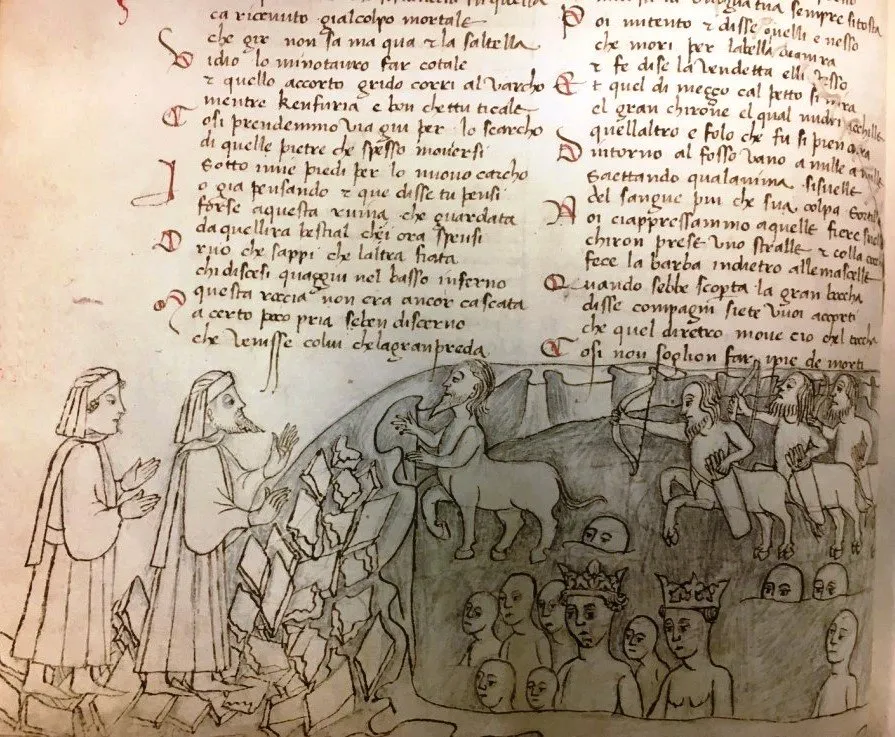 ca ricevuto gialcolpo mortale
che gir non sa ma qua z la saltella
Vidio lo minotauro far cotale
z quello accorto grido corri al varcho
mentre kenfuria e bon chettu ticale
Cosi prendemmo via giu per lo scarcho
di quelle pietre che spesso moversi
Sotto imie piedi per lo nuovo carcho
Io gia pensando z que disse tu pensi
forse aquesta ruina che guardata
da quellira bestial chei ora spensi
Or vuo che sappi che laltra fiata
chi discesi quaggiu nel basso inferno
questa roccia non era ancor cascata
Ma certo poco pria seben discerno
che venisse colui chelagranpreda
tua sempre sitosta
Poi mi tento z disse quelli e nesso
che mori per labella deamira
z fe dise la vendetta elli stesso
Et quel di meççο cal petto si mira
el gran chirone el qual nudri achille
quellaltro e folo che fu si pien dira
Dintorno al fosso vano a mille a mille
Saettando qualanima sisvelle
del sangue piu che sua colpa sortille
Noi ciappressammo aquelle fiere snelle
chiron prese uno stralle z colla cocca
fece la barba indietro allemascelle
Quando sebbe scopta la gran boccha
disse compagni siete vuoi accorti
che quel diretro move cio chel toccha
Cosi non soglion far ipie de morti